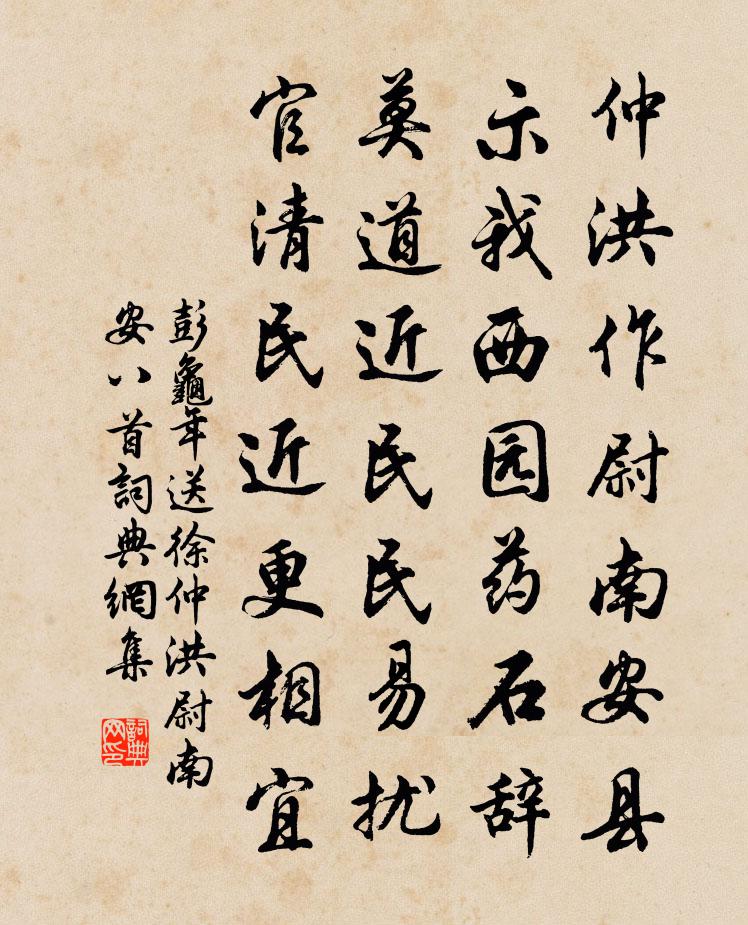 仲洪作尉南安县
示我西园药石辞
莫道近民民易扰
官清民近更相宜
彭龜年送徐仲洪尉南
安八首詞典網集
詞典
网印